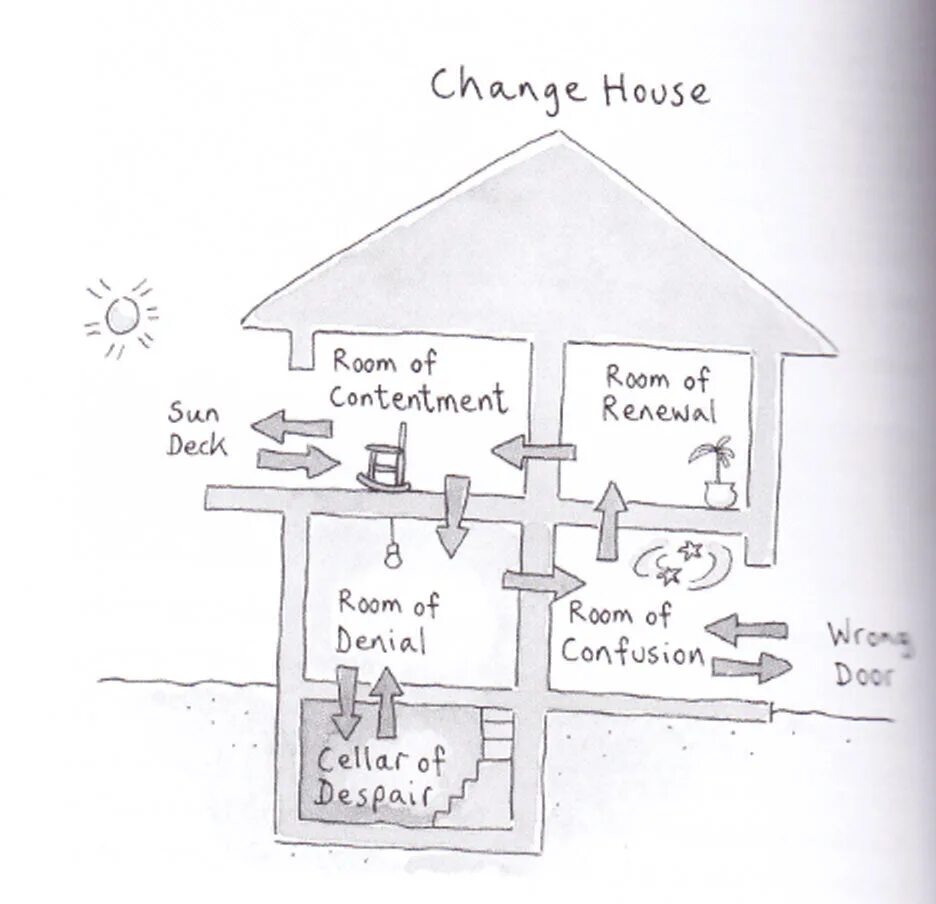 Change House
Room of
Contentment
Room of
Renewal
Sun
Deck
Room of
Denial
Room of
Confusion
Wrong
Door
Cellar of
Despair